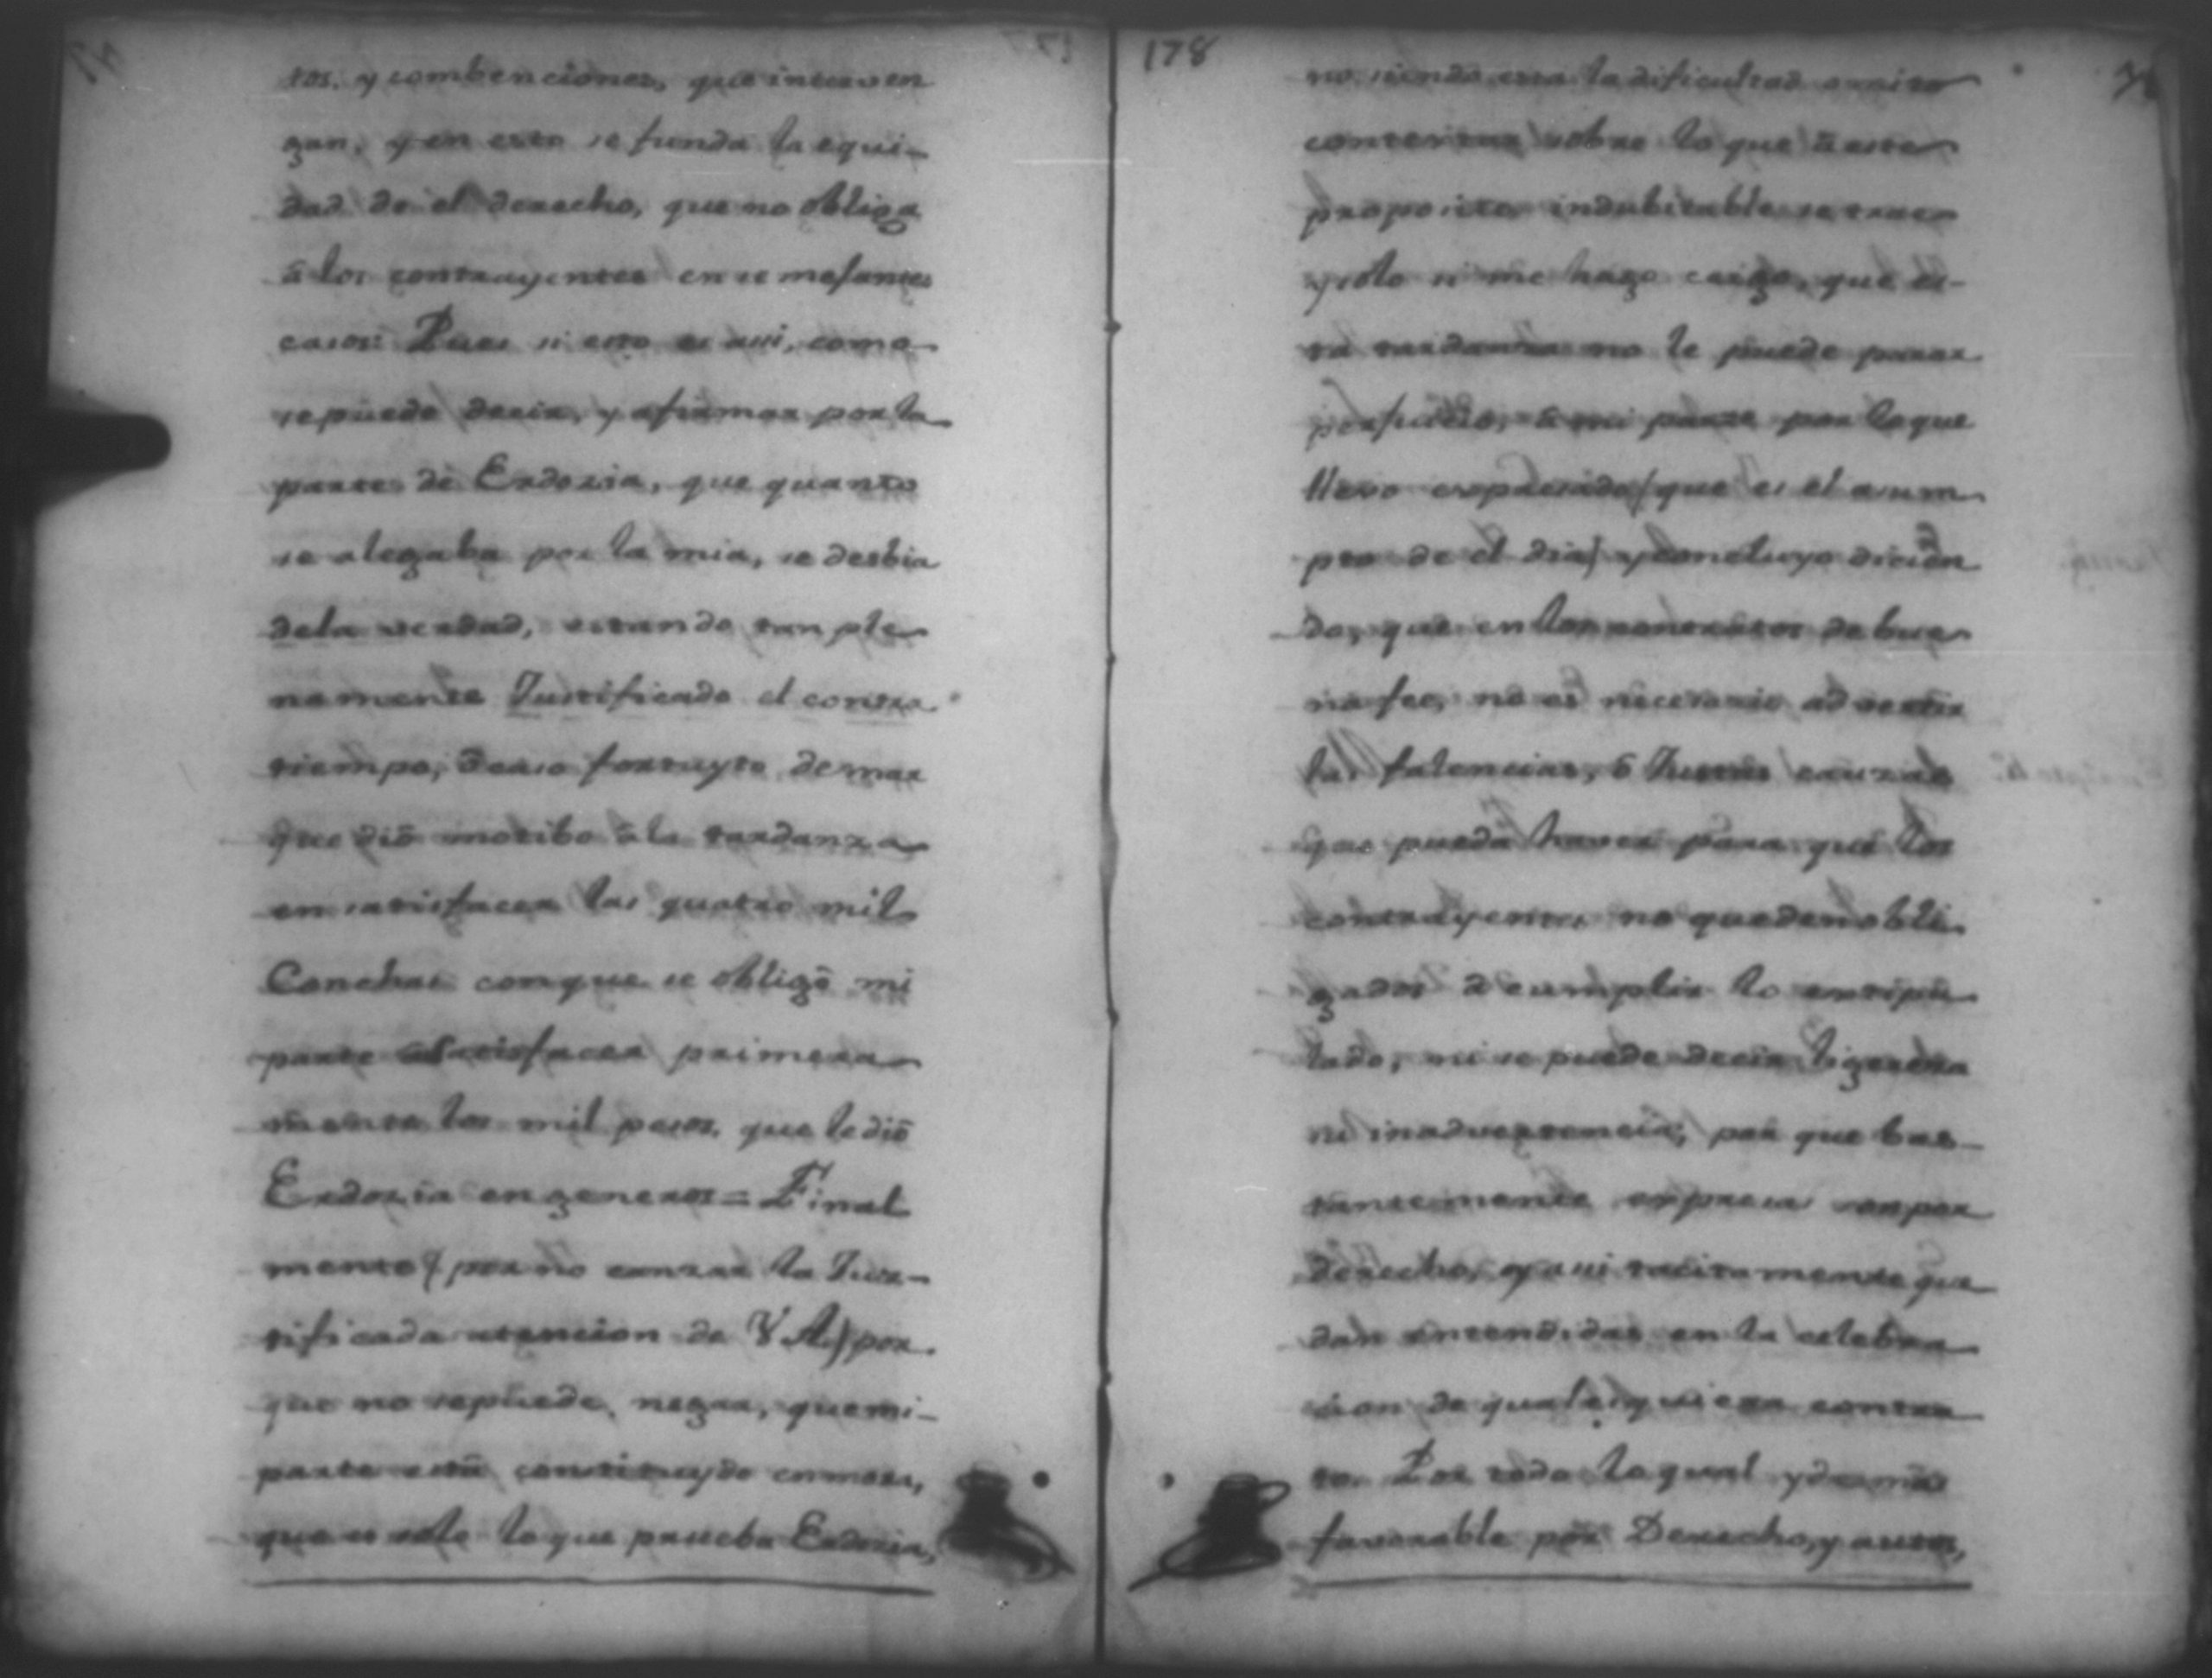 tos. y combenciones, que interven
gan, y en esto se funda la equi-
dad de el derecho, que no obliga
à los contrayentes en semejantes
casos: Pues si esto es assi, como
se puede decir, y afirmar por la
parte de Erdozia, que quanto
se alegaba por la mia, se desbia
dela verdad, estando tan ple-
namente Justificado el contra
tiempo, ò caso fortuyto de mar
que diò motibo à la tardanza
en satisfacer las quatro mil
Conchas conque se obligò mi
parte à satisfacer primera
mente los mil pesos. que le diò
Erdozia en generos = Final
mente / por no canzar la Jus-
tificada atencion de V.A.) por
que no se puede negar, que mi
parte està constituydo en mora,
que es solo lo que prueba Erdozia,
178
no siendo esta la dificultad
sobre lo que à este
proposito indubitable se trae
y solo si me hago cargo, que es-
ta tardanza no le puede parar
perjuicio, à mi parte por lo que
llevo expresado / que es el asum
pto de el dia) y concluyo dicien
do, que en los contratos de bue
na fee, no es necesario advertir
las falencias, ò Justas causas
que pueda haver para que los
contrayentes no queden obli
gados à cumplir lo estipu
lado, ni se puede decir ligereza
ni inadvertencia, por que bas-
tantemente expresas son por
derecho, y assi tacitamente que
dan entendidas en la celebra
cion de qualesquiera contra
to. Por todo lo qual y demàs
favorable por Derecho, y autos,